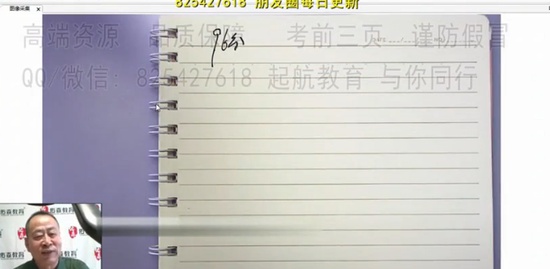 图像采集
825427618 朋友圈每日更新
高端资源 品质保障 考前三页 谨防假冒
96分
QQ/微信: 825427618 起航教育 与你同行